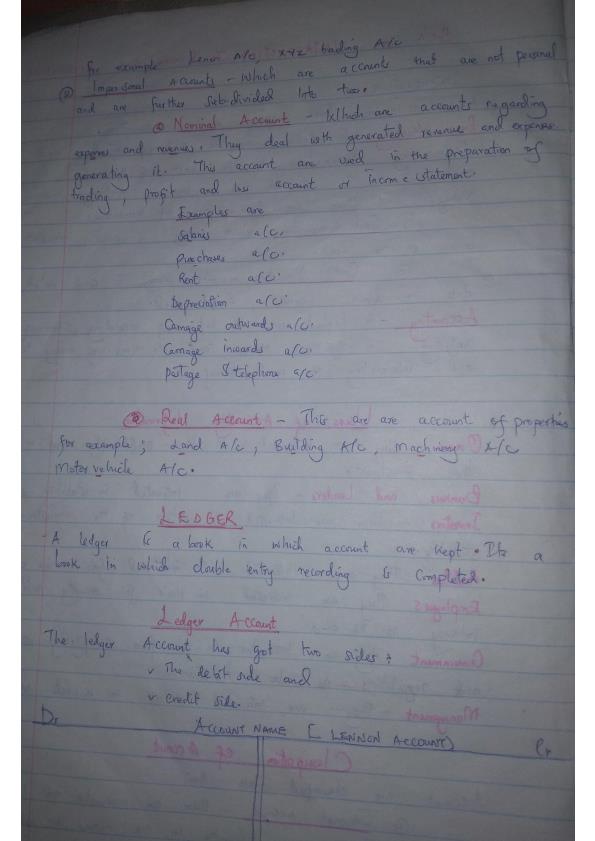 for example Lenon A/c, XYZ trading A/c
② Impersonal Accounts - Which are accounts that are not personal
and are further subdivided into two.
Nominal Account - Which are accounts regarding
expenses and revenues. They deal with generated revenue and expenses
generating it. This account are used in the preparation of
trading, profit and loss account or income statement.
Examples are
Salaries a/c.
Purchases a/c.
Rent a/c.
Depreciation a/c.
Carriage outwards a/c.
Carriage inwards a/c.
Postage & telephone a/c
Real Account - This are are account of properties
for example; Land A/c, Building A/c, Machinery A/c
Motor vehicle A/c.
LEDGER
A ledger is a book in which account are kept. Its a
book in which double entry recording is completed.
Ledger Account
The ledger Account has got two sides:
The debit side and
credit side.
Dr Cr
ACCOUNT NAME ( LENNON ACCOUNT)